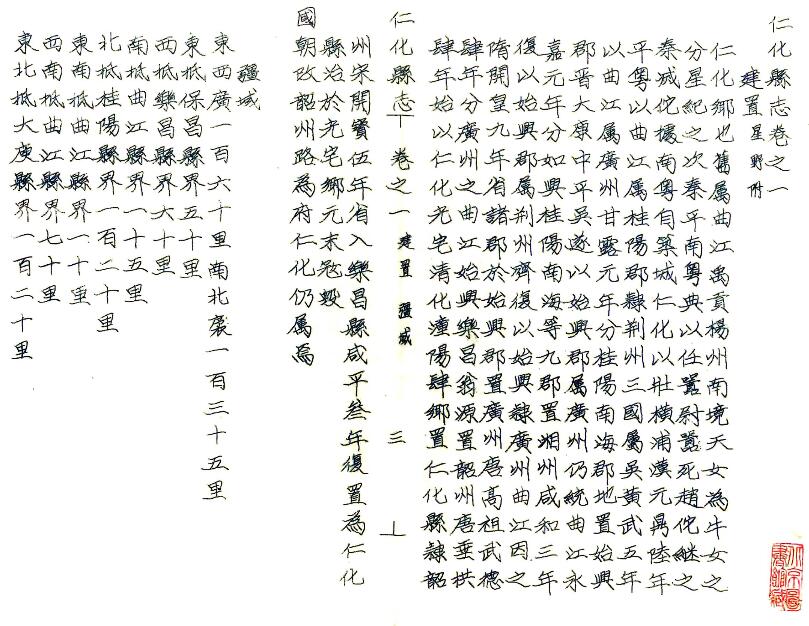 仁化縣志卷之一
建置 星野附
仁化鄉也舊屬曲江禹貢楊州南境天女為牛女之
分星紀之次秦平南粵典以任囂尉囂死趙佗繼之
秦城佗據南粵自築城仁化以壯橫浦漢元鼎陸年
平粵以曲江属桂陽郡隸荆州三國屬吳黃武五年
以曲江属廣州甘露元年分桂陽南海郡地置始興
郡晋大康中平吳遂以始興郡属廣州仍統曲江永
嘉元年分如興桂陽南海等九郡置湘州咸和三年
復以始興郡属荆州齊復以始興隸廣州曲江因之
隋開皇九年省諸郡於始興郡置廣州唐高祖武德
肆年分廣州之曲江始興樂昌翁源置韶州唐垂拱
肆年始以仁化光宅清化潼陽肆鄉置仁化縣隸韶
仁化縣志 卷之一 建置 疆域 三
州宋開寶伍年省入樂昌縣咸平叁年復置為仁化
縣治於光宅鄉元末冦毀
國朝改韶州路為府仁化仍属焉
疆域
東西廣一百六十里南北袤一百三十五里
東抵保昌縣界五十里
西抵樂昌縣界六十里
南抵曲江縣界一十五里
北抵桂陽縣界一百二十里
東南抵曲江縣界一十里
西南抵曲江縣界七十里
東北抵大庾縣界一百二十里